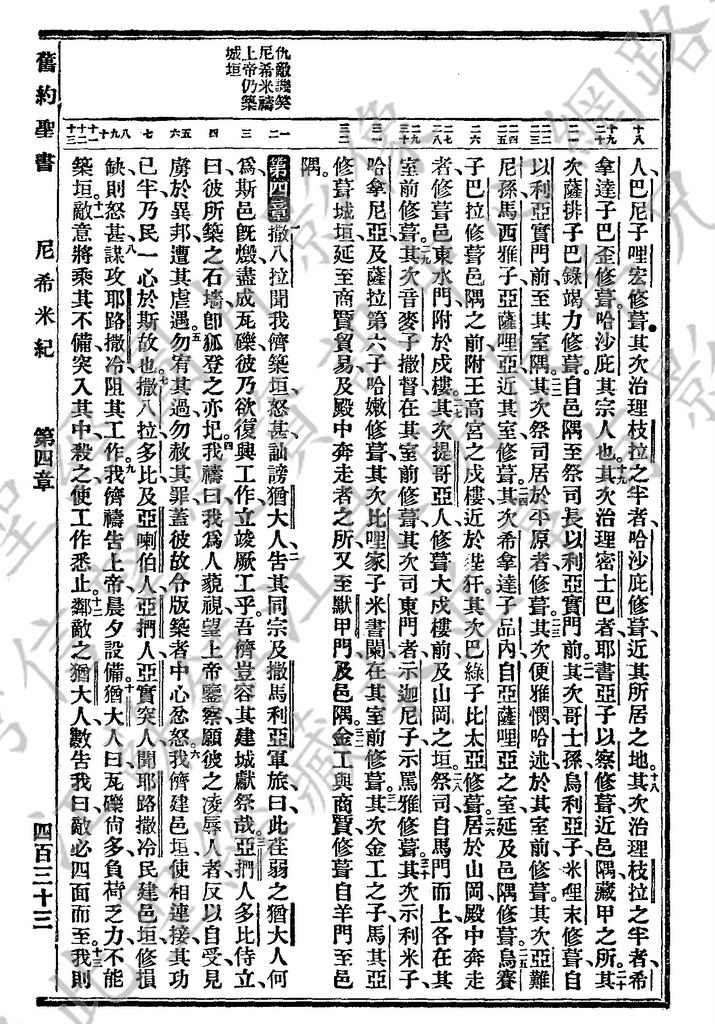 舊約聖書 尼希米紀 第四章 四百三十三
仇敵譏笑
尼希米禱
上帝仍築
城垣
人巴尼子哩宏修葺其次治理枝拉之半者哈沙庇修葺近其所居之地十八其次治理枝拉之半者希
拿達子巴歪修葺哈沙庇其宗人也十九其次治理密士巴者耶書亞子以察修葺近邑隅藏甲之所二十其
次薩排子巴錄竭力修葺自邑隅至祭司長以利亞實門前二一其次哥士孫烏利亞子米哩末修葺自
以利亞實門前至其室隅二二其次祭司居於平原者修葺二三其次便雅憫哈述於其室前修葺其次亞難
尼孫馬西雅子亞薩哩亞近其室修葺二四其次希拿達子品內自亞薩哩亞之室延及邑隅修葺二五烏賽
子巴拉修葺邑隅之前附王高宮之戍樓近於陛犴其次巴綠子比太亞修葺二六居於山岡殿中奔走
者修葺邑東水門附於戍樓二七其次提哥亞人修葺大戍樓前及山岡之垣二八祭司自馬門而上各在其
室前修葺二九其次音麥子撒督在其室前修葺其次司東門者示迦尼子示罵雅修葺三十其次示利米子
哈拿尼亞及薩拉第六子哈嫩修葺其次比哩家子米書闌在其室前修葺三一其次金工之子馬其亞
修葺城垣延至商賈貿易及殿中奔走者之所又至默甲門及邑隅三二金工與商賈修葺自羊門至邑
隅
第四章 一撒八拉聞我儕築垣怒甚訕謗猶大人二告其同宗及撒馬利亞軍旅曰此荏弱之猶大人何
為斯邑旣燬盡成瓦礫彼乃欲復興工作立竣厥工乎吾儕豈容其建城獻祭哉三亞捫人多比侍立
曰彼所築之石墻卽狐登之亦圮四我禱曰我為人藐視望上帝鑒察願彼之凌辱人者反以自受見
虜於異邦遭其虐遇五勿宥其過勿赦其罪蓋彼故令版築者中心忿怒六我儕建邑垣使相連接其功
已半乃民一心於斯故也七撒八拉多比及亞喇伯人亞捫人亞實突人聞耶路撒冷民建邑垣修損
缺則怒甚八謀攻耶路撒冷阻其工作九我儕禱告上帝晨夕設備十猶大人曰瓦礫尚多負荷乏力不能
築垣十一敵意將乘其不備突入其中殺之使工作悉止十二鄰敵之猶大人數告我曰敵必四面而至十三我則